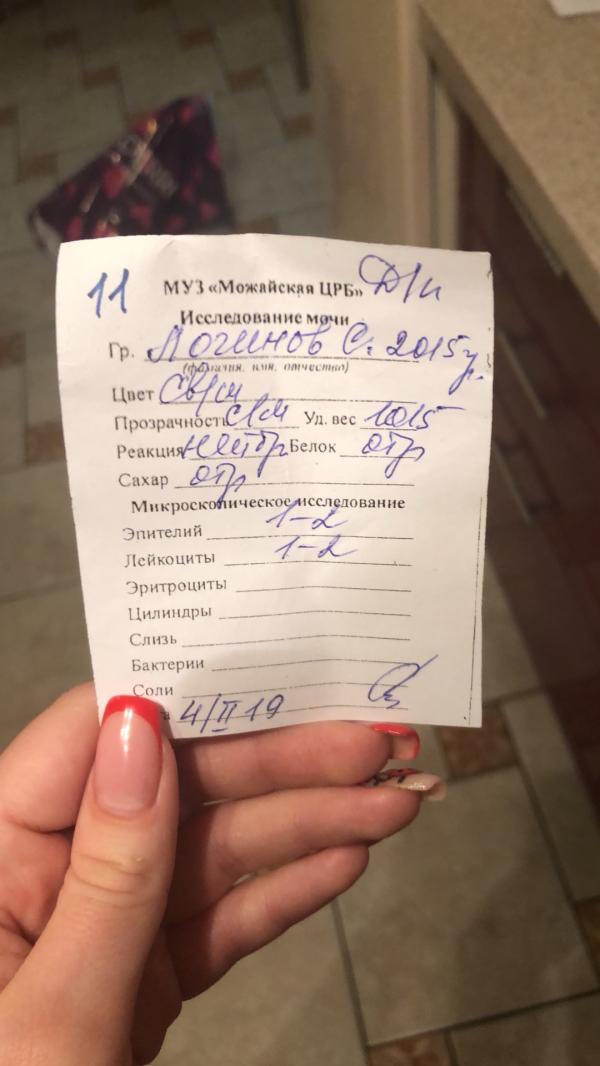 11
МУЗ «Можайская ЦРБ» Д/и
Исследование мочи
Гр. Логинов С. 2015
(фамилия, имя, отчество)
Цвет
Прозрачность Уд. вес 1015
Реакция нейтр Белок отр
Сахар отр
Микроскопическое исследование
Эпителий 1-2
Лейкоциты 1-2
Эритроциты
Цилиндры
Слизь
Бактерии
Соли
4/II 19